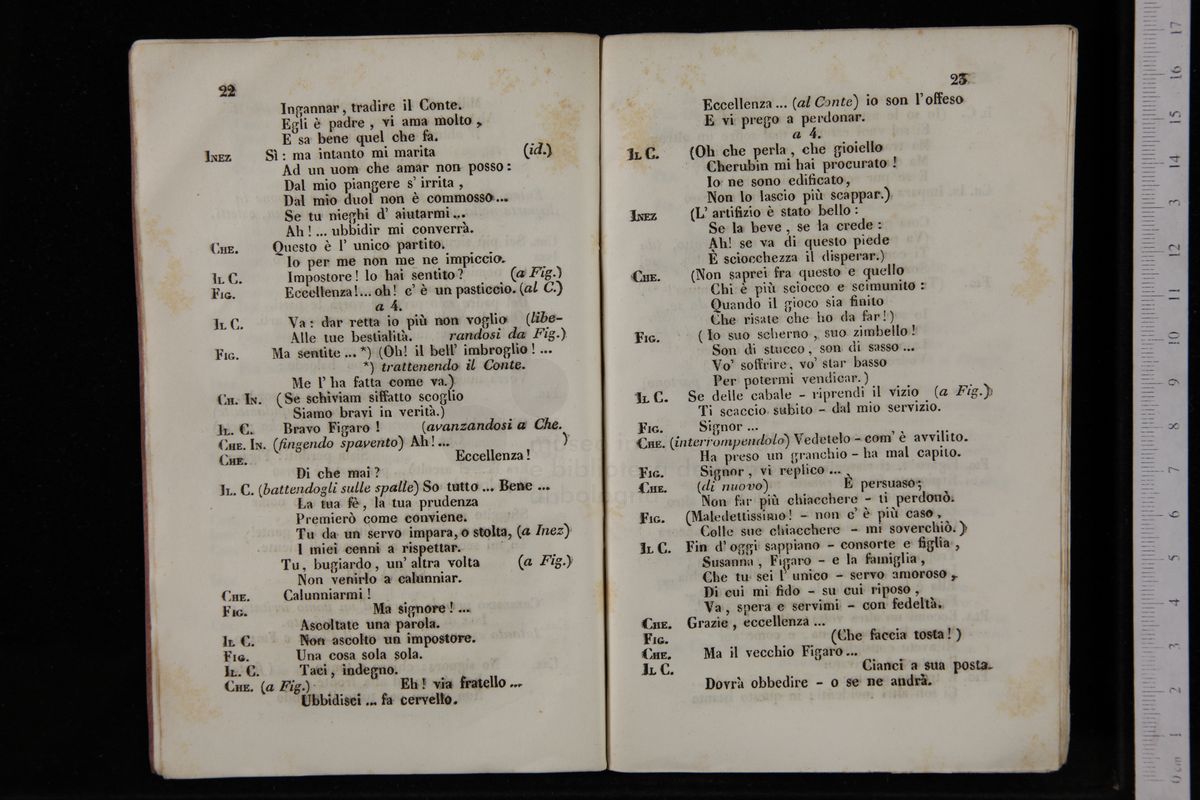 22
Ingannar, tradire il Conte.
Egli è padre, vi ama molto,
E sa bene quel che fa.
INEZ Sì: ma intanto mi marita (id.)
Ad un uom che amar non posso:
Dal mio piangere s' irrita,
Dal mio duol non è commosso...
Se tu nieghi d' aiutarmi...
Ah! ... ubbidir mi converrà.
CHE. Questo è l' unico partito.
Io per me non me ne impiccio.
IL C. Impostore! lo hai sentito? (a Fig.)
FIG. Eccellenza!... oh! c' è un pasticcio. (al C.)
a 4.
IL C. Va: dar retta io più non voglio (libe-
Alle tue bestialità. randosi da Fig.)
FIG. Ma sentite ... *) (Oh! il bell' imbroglio! ...
*) trattenendo il Conte.
Me l' ha fatta come va.)
CH. IN. (Se schiviam siffatto scoglio
Siamo bravi in verità.)
IL. C. Bravo Figaro! (avanzandosi a Che.
CHE. IN. (fingendo spavento) Ah!... )
CHE. Eccellenza!
Di che mai?
IL. C. (battendogli sulle spalle) So tutto ... Bene ...
La tua fè, la tua prudenza
Premierò come conviene.
Tu da un servo impara, o stolta, (a Inez)
I miei cenni a rispettar.
Tu, bugiardo, un' altra volta (a Fig.)
Non venirlo a calunniar.
CHE. Calunniarmi!
FIG. Ma signore! ...
Ascoltate una parola.
IL C. Non ascolto un impostore.
FIG. Una cosa sola sola.
IL. C. Taci, indegno.
CHE. (a Fig.) Eh! via fratello ...
Ubbidisci ... fa cervello.
23
Eccellenza ... (al Conte) io son l' offeso
E vi prego a perdonar.
a 4.
IL C. (Oh che perla, che gioiello
Cherubin mi hai procurato!
Io ne sono edificato,
Non lo lascio più scappar.)
INEZ (L' artifizio è stato bello:
Se la beve, se la crede:
Ah! se va di questo piede
È sciocchezza il disperar.)
CHE. (Non saprei fra questo e quello
Chi è più sciocco e scimunito:
Quando il gioco sia finito
Che risate che ho da far!)
FIG. (Io suo scherno, suo zimbello!
Son di stucco, son di sasso ...
Vo' soffrire, vo' star basso
Per potermi vendicar.)
IL C. Se delle cabale - riprendi il vizio (a Fig.)
Ti scaccio subito - dal mio servizio.
FIG. Signor ...
CHE. (interrompendolo) Vedetelo - com' è avvilito.
Ha preso un granchio - ha mal capito.
FIG. Signor, vi replico ...
CHE. (di nuovo) È persuaso;
Non far più chiacchere - ti perdonò.
FIG. (Maledettissimo! - non c' è più caso,
Colle sue chiacchere - mi soverchiò.)
IL C. Fin d' oggi sappiano - consorte e figlia,
Susanna, Figaro - e la famiglia,
Che tu sei l' unico - servo amoroso,
Di cui mi fido - su cui riposo,
Va, spera e servimi - con fedeltà.
CHE. Grazie, eccellenza ...
FIG. (Che faccia tosta!)
CHE. Ma il vecchio Figaro...
IL C. Cianci a sua posta.
Dovrà obbedire - o se ne andrà.